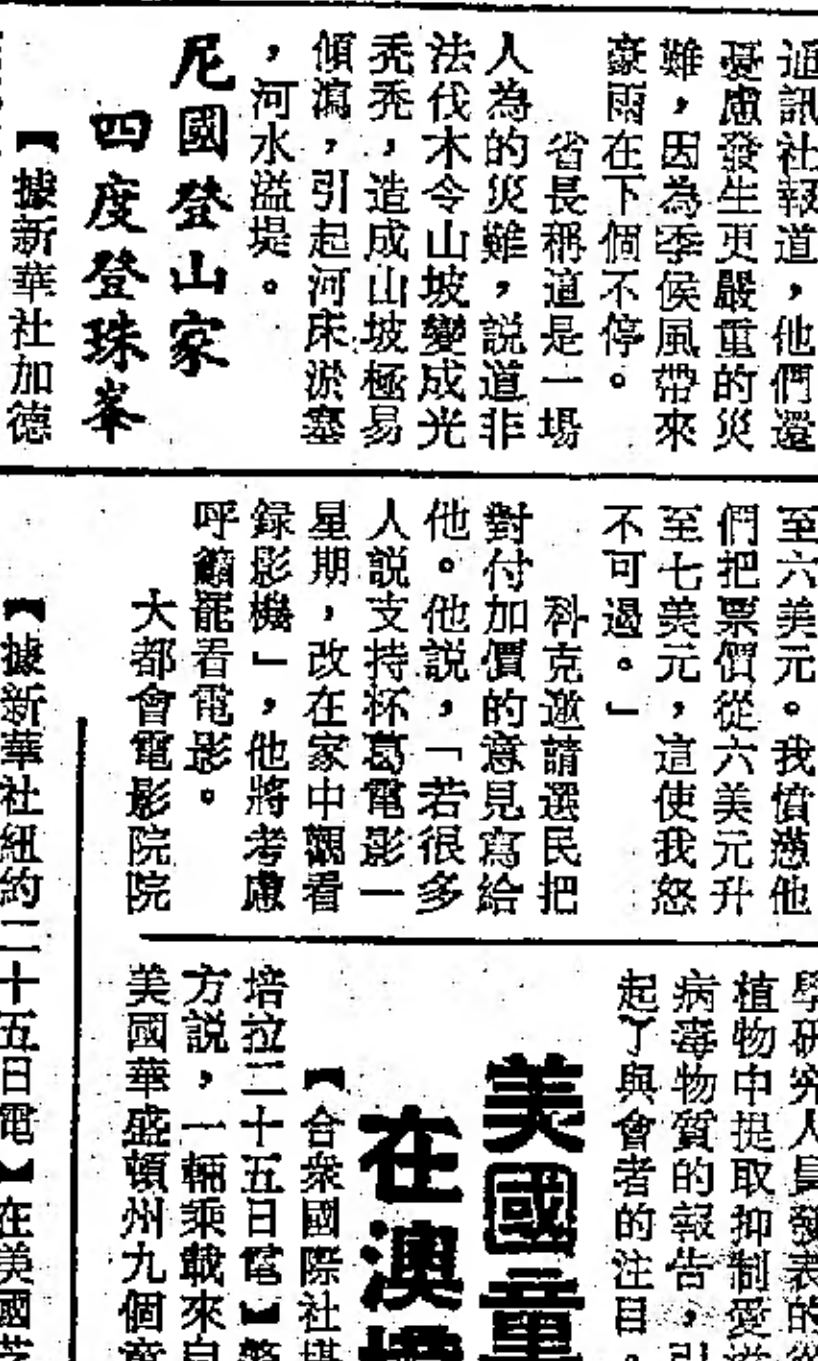 通訊社報道，他們還
憂慮發生更嚴重的災
難，因為季候風帶來
豪雨在下個不停。
省長稱這是一場
人為的災難，説道非
法伐木令山坡變成光
禿禿，造成山坡極易
傾瀉，引起河床淤塞
，河水溢堤。
尼國登山家
四度登珠峯
【據新華社加德
至六美元。我憤懣他
們把票價從六美元升
至七美元，這使我怒
不可遏。」
科克邀請選民把
對付加價的意見寫給
他。他説，「若很多
人説支持杯葛電影一
星期，改在家中觀看
録影機」，他將考慮
呼籲罷看電影。
大都會電影院院
【據新華社紐約二十五日電】在美國
學研究人員發表的從
植物中提取抑制愛滋
病毒物質的報告，引
起了與會者的注目。
美國童
在澳
【合衆國際社堪
培拉二十五日電】警
方説，一輛乘載來自
美國華盛頓州九個童